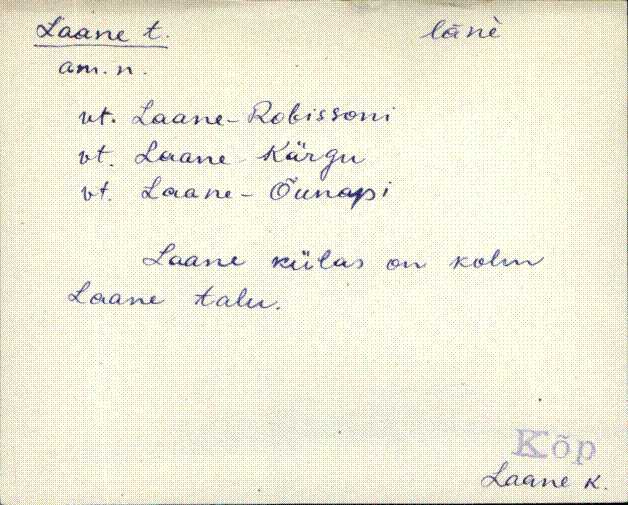 Laane t. lānè
am. n.
vt. Laane-Robissoni
vt. Laane-Kärgu
vt. Laane-Õunapi
Laane külas on kolm
Laane talu.
Kõp
Laane k.